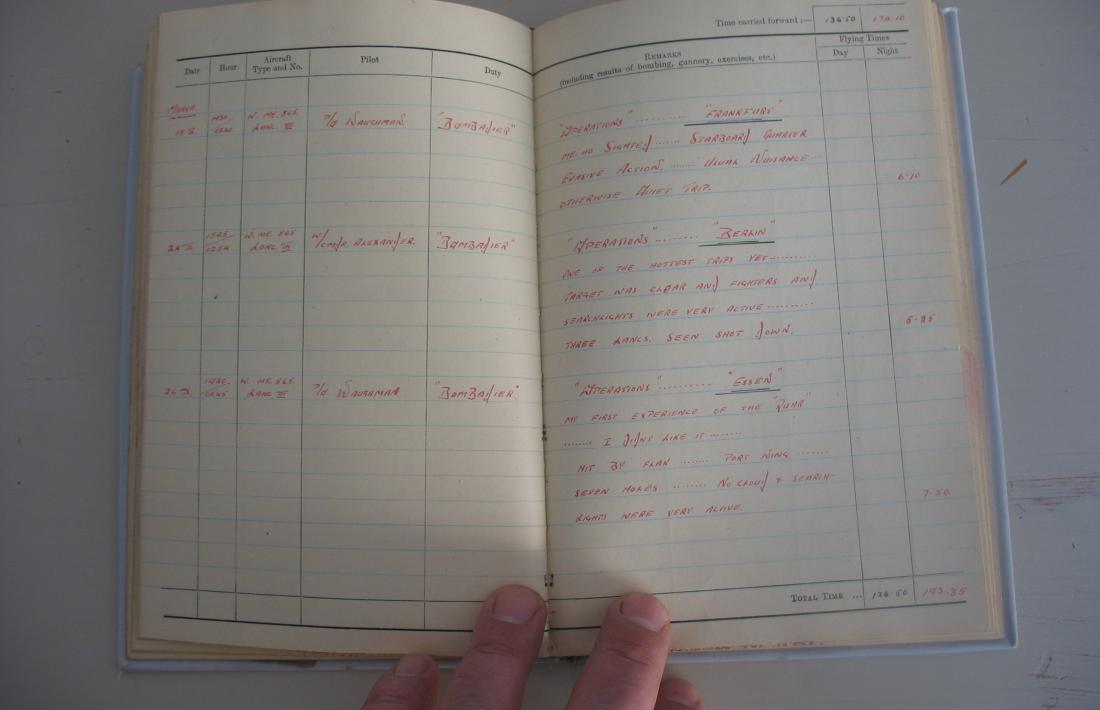 Date Hour Aircraft Type and No. Pilot Duty
March
18th W. ME.565 P/O Waughman "Bombadier"
Lanc III
24th 1825 W. ME 565 W/Cmdr Alexander. "Bombadier"
Lanc III
26th W. ME 565 P/O Waughman "Bombadier"
Lanc III
Time carried forward :— 136·50
Remarks
(including results of bombing, gunnery, exercises, etc.)
Flying Times
Day Night
"Operations" .......... "Frankfurt"
ME. 110 Sighted ....... Starboard Quarter
Evasive Action. ....... Usual Nuisance ...
otherwise Quiet Trip. 6·10
"Operations" ........ "Berlin"
one of the hottest trips yet ..........
Target was clear and fighters and
searchlights were very active ..........
three Lancs. seen shot down.
"Operations" .......... "Essen"
My first experience of the "Ruhr"
....... I didnt like it .......
Hit by flak ....... Port wing .......
Seven holes ........ No cloud & search-
lights were very active. 7·50
Total Time ... 136·50 193·35